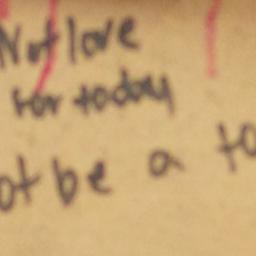 Not love
for today
ot be a to